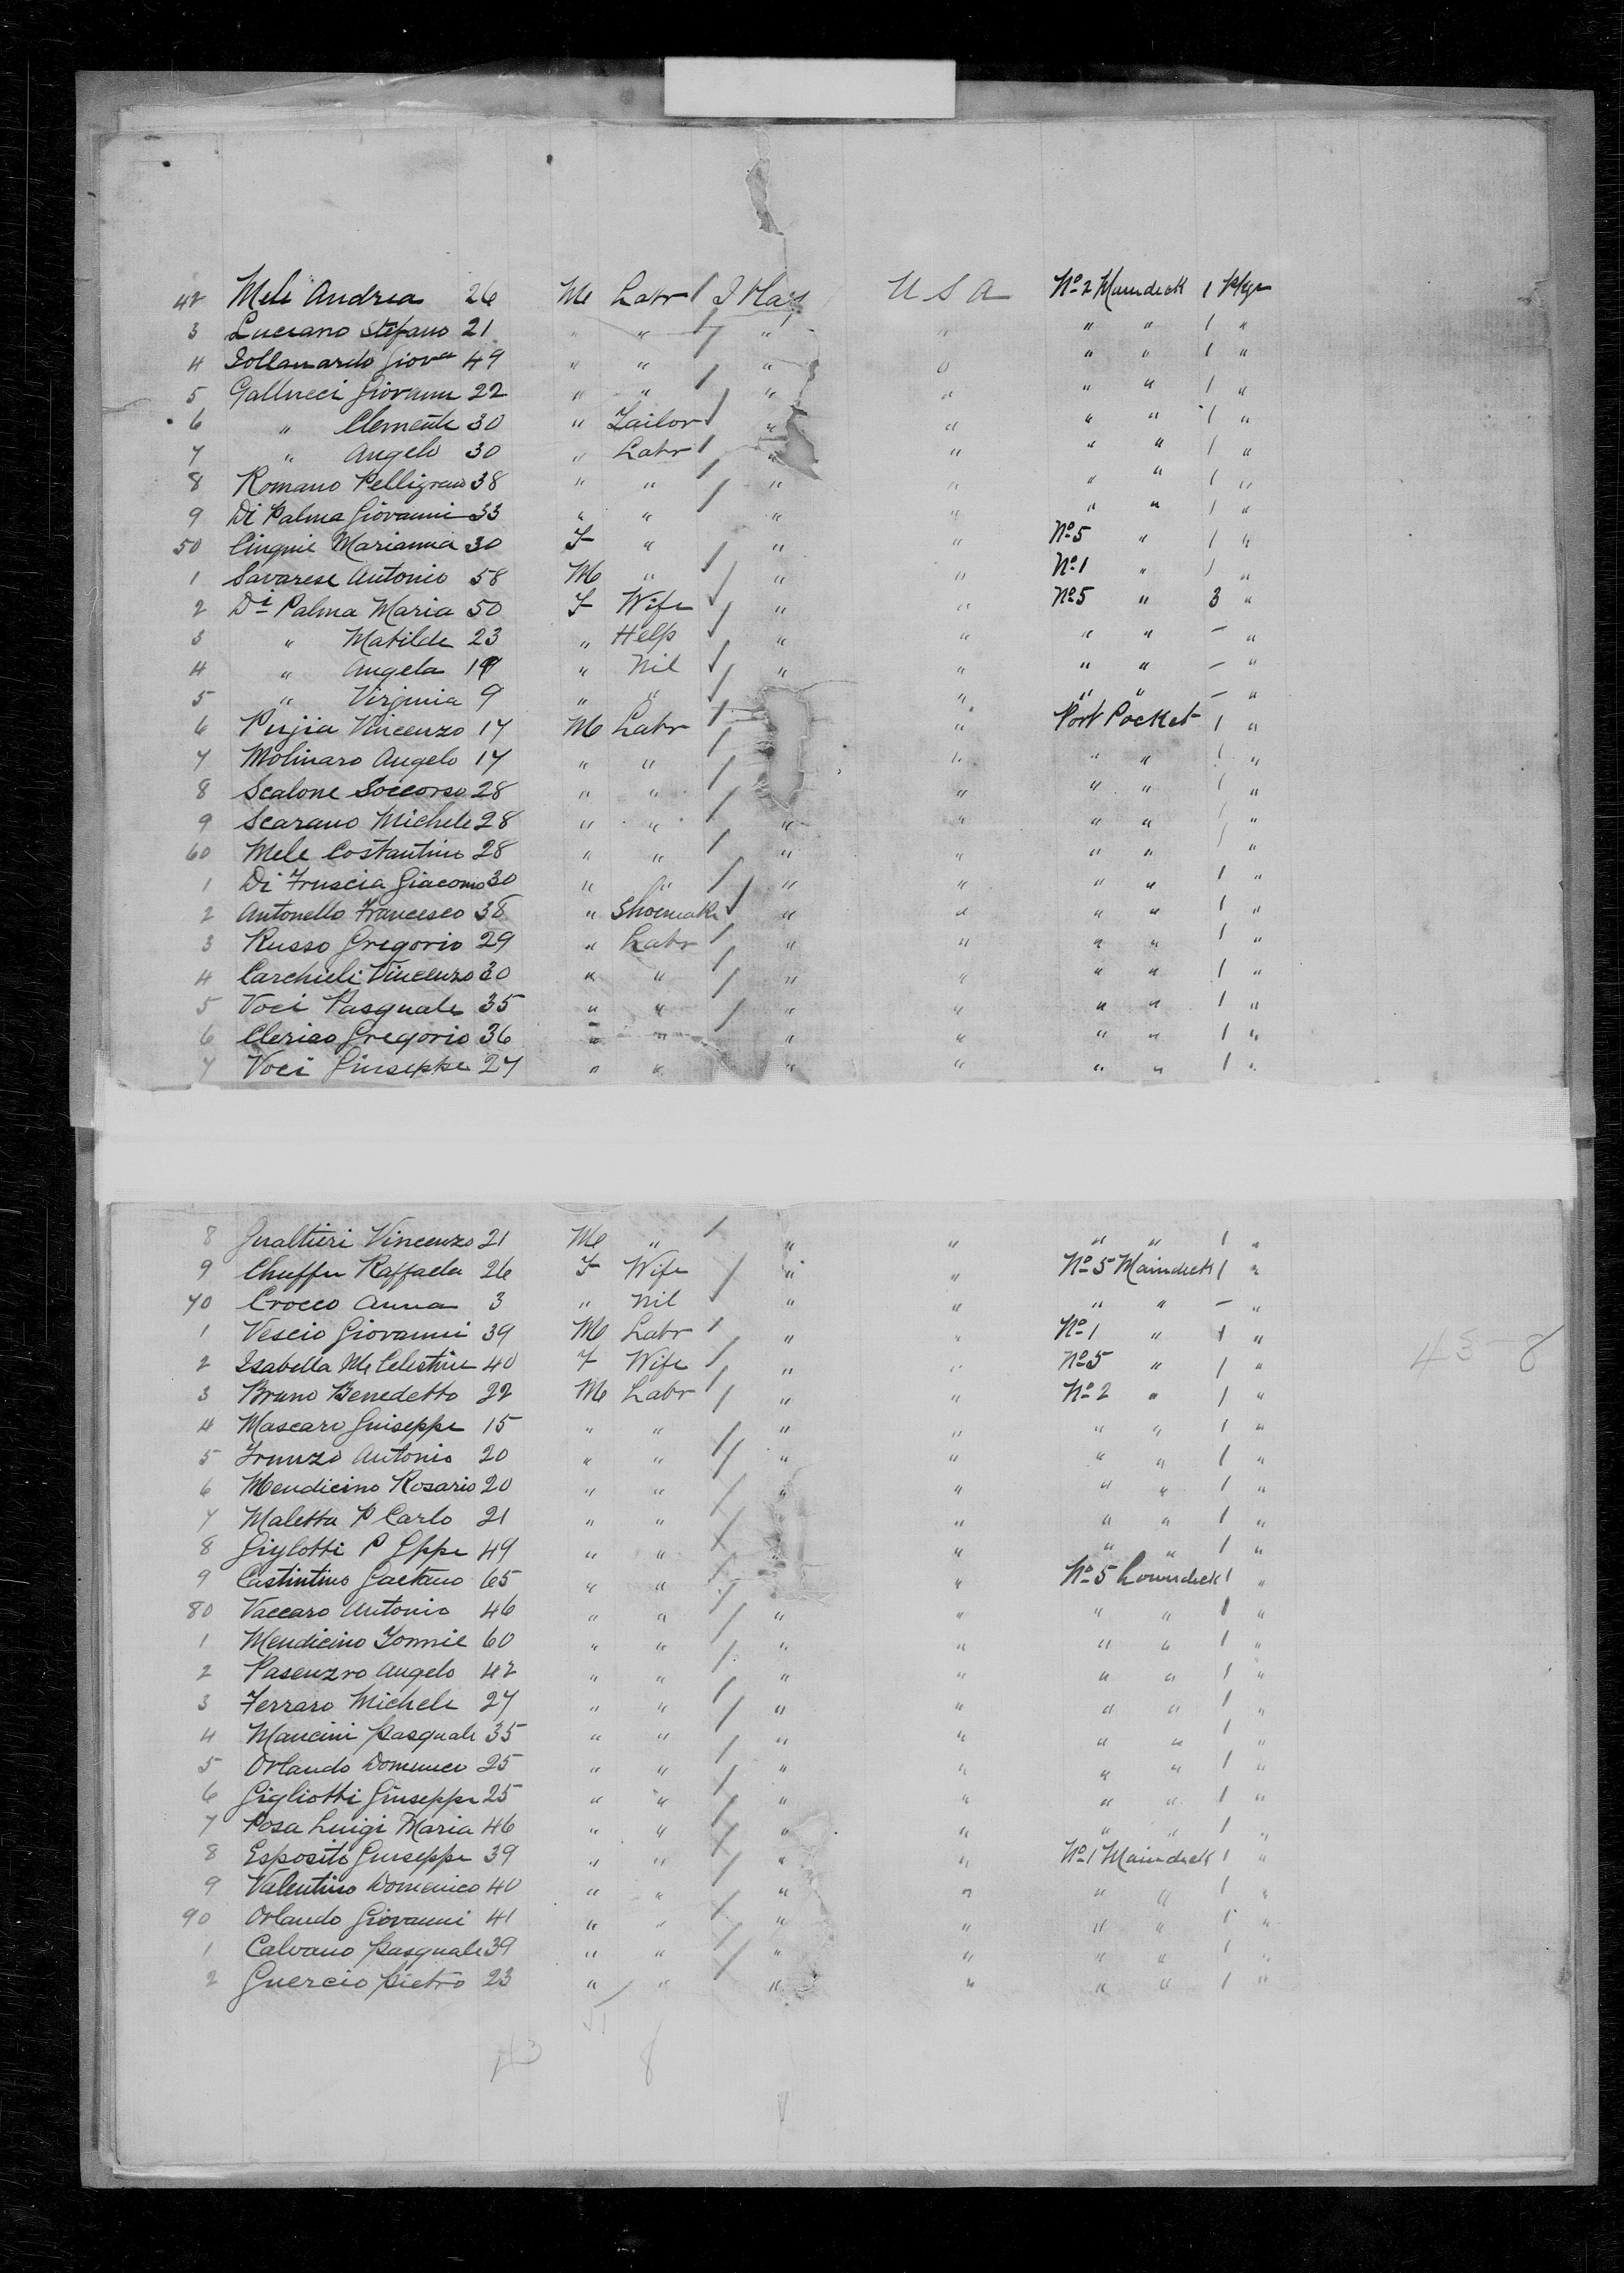 42 Mele Andrea 26 M Labr / Italy U S A No 2 Maindeck 1 Pkge
3 Luciano Stefano 21 " " / " " " " 1 "
4 Giova 49 " " / " " " " 1 "
5 Gallucci Giovanni 22 " " / " " " " 1 "
6 " Clemente 30 " Tailor / " " " " 1 "
7 " Angelo 30 " Labr / " " " " 1 "
8 Romano Pelligrano 38 " " / " " " " 1 "
9 Di Palma Giovanni 33 " " " " " " 1 "
50 Marianna 30 F " / " " No 5 " 1 "
1 Savarese Antonio 58 M " / " " No 1 " 1 "
2 Di Palma Maria 50 F Wife / " " No 5 " 3 "
3 " Matilde 23 " Help / " " " " – "
4 " Angela 19 " Nil / " " " " – "
5 " Virginia 9 " " / " " " – "
6 Pujia Vincenzo 17 M Labr / " Port Pocket 1 "
7 Molinaro Angelo 17 " " / " " " 1 "
8 Scalone Soccorso 28 " " / " " " 1 "
9 Scarano Michele 28 " " / " " " " 1 "
60 Mele Costantino 28 " " / " " " " 1 "
1 Di Fruscia Giacomo 30 " " / " " " " 1 "
2 Antonello Francesco 38 " Shoemakr / " " " " 1 "
3 Russo Gregorio 29 " Labr / " " " " 1 "
4 Carchidi Vincenzo 30 " " / " " " " 1 "
5 Voci Pasquale 35 " " / " " " " 1 "
6 Clerico Gregorio 36 " " " " " " 1 "
7 Voci Giuseppe 27 " " " " " " 1 "
8 Gualtieri Vincenzo 21 M " / " " " " 1 "
9 Raffaela 26 F Wife / " " No 5 Maindeck 1 "
70 Crocco Anna 3 " Nil / " " " " – "
1 Vescio Giovanni 39 M Labr / " " No 1 " 1 "
2 Isabella M Celestine 40 F Wife / " " No 5 " 1 "
3 Bruno Benedetto 22 M Labr / " " No 2 " 1 "
4 Mascaro Guiseppe 15 " " / " " " " 1 "
5 Antonio 20 " " / " " " " 1 "
6 Mendicino Rosario 20 " " / " " " " 1 "
7 Maletta P Carlo 21 " " / " " " 1 "
8 Giglotti P Gppe 49 " " / " " " " 1 "
9 Castintino Gaetano 65 " " / " No 5 Lowndeck 1 "
80 Vaccaro Antonio 46 " " / " " " " 1 "
1 Mendicino Tommie 60 " " / " " " " 1 "
2 Pasenzro Angelo 42 " " / " " " " 1 "
3 Ferraro Michele 27 " " / " " " " 1 "
4 Mancini Pasquale 35 " " / " " " " 1 "
5 Orlando Domenico 25 " " / " " " " 1 "
6 Gigliotti Giuseppe 25 " " / " " " " 1 "
7 Posa Luigi Maria 46 " " / " " " " 1 "
8 Esposito Giuseppe 39 " " / " " No 1 Maindeck 1 "
9 Valentino Domenico 40 " " / " " " " 1 "
90 Orlando Giovanni 41 " " / " " " " 1 "
1 Calvano Pasquale 39 " " / " " " " 1 "
2 Guercio Pietro 23 " " / " " " " 1 "